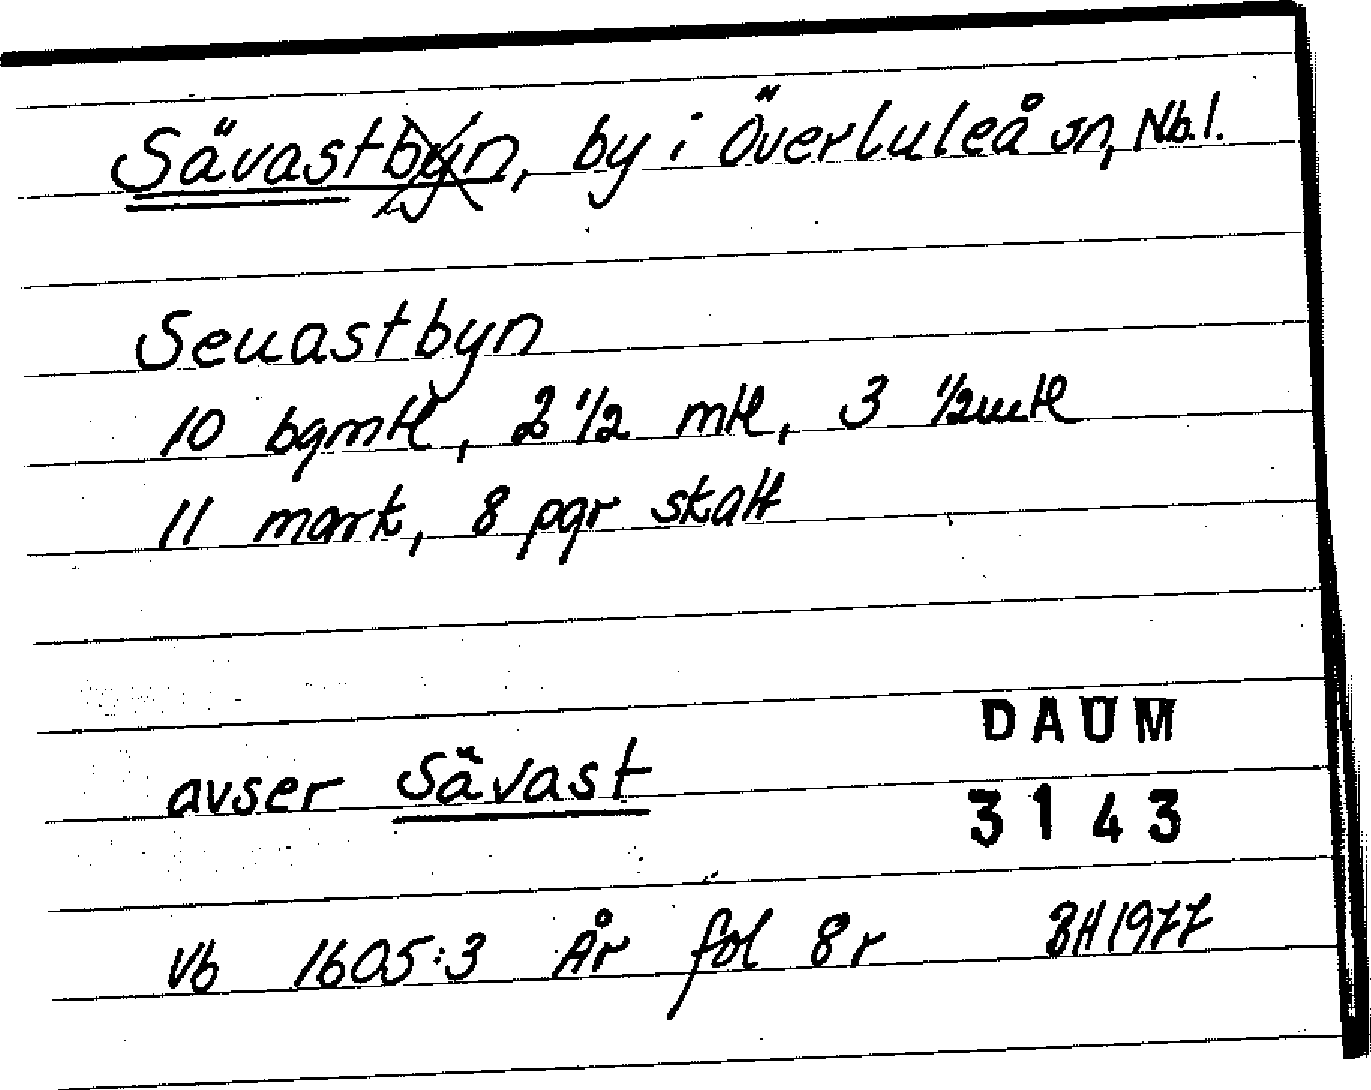 Sävastbyn, by i Överluleå sn, Nb.l.
Seuastbyn
10 bgmtl, 2 1/2 mtl, 3 1/2 mtl
11 mark, 8 pgr skatt
DAUM
avser Sävast
3143
Vb 1605:3 År fol 8r BH 1977